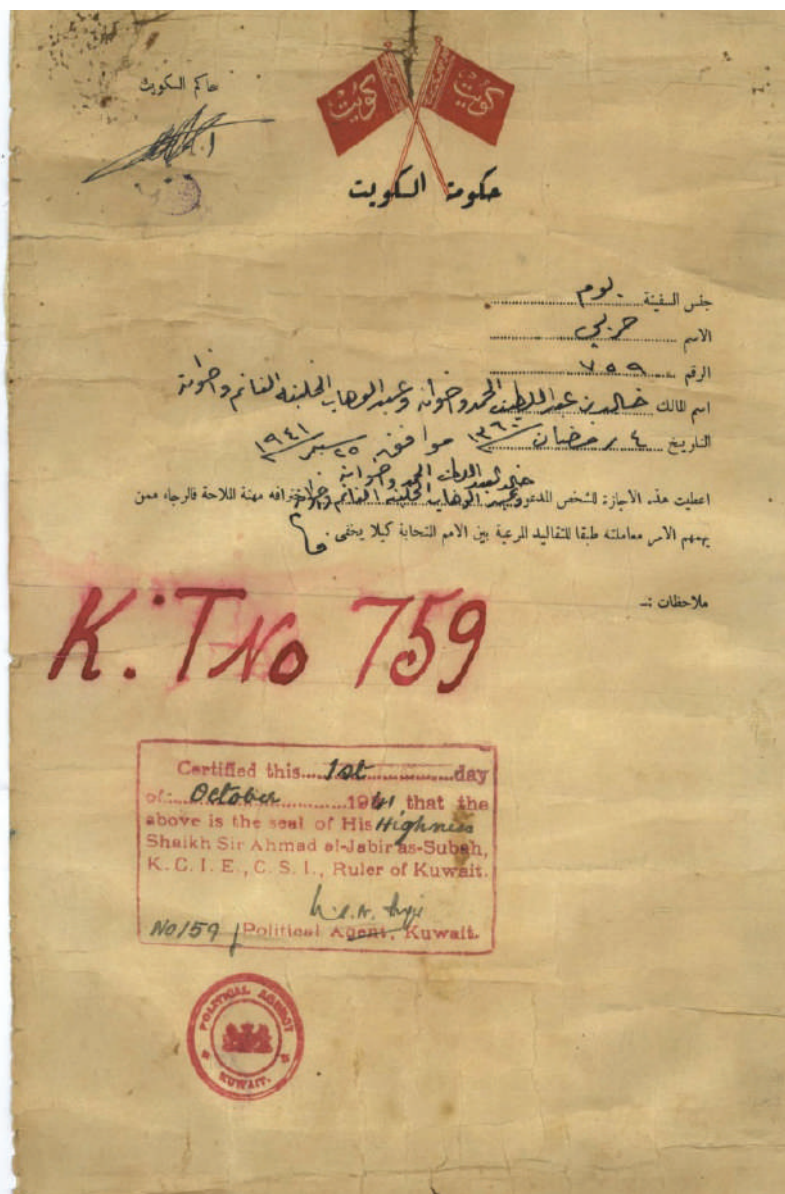 حاكم الكويت
كويت
كويت
حكومة الكويت
جنس السفينة بوم
الاسم حربي
الرقم ٧٥٩
اسم المالك خالد بن عبد اللطيف الحمد واخوانه وعبد الوهاب الخليفه الغانم واخوانه
التاريخ ٤ رمضان ١٣٦٠ موافق ٢٥ سبتمبر ١٩٤١
خالد العبد اللطيف الحمد واخوانه
اعطيت هذه الأجازة للشخص المدعو وعبد الوهاب الخليفه الغانم واخوانه لاحترافه مهنة الملاحة فالرجاء ممن
يهمهم الأمر معاملته طبقا للتقاليد المرعية بين الامم المتحابة كيلا يخفى
ملاحظات :ـ
K.T No 759
Certified this 1st day
of October 1941 that the
above is the seal of His Highness
Shaikh Sir Ahmad al-Jabir as-Subah,
K. C. I. E., C. S. I., Ruler of Kuwait.
No 159 Political Agent, Kuwait.
POLITICAL AGENCY
KUWAIT.